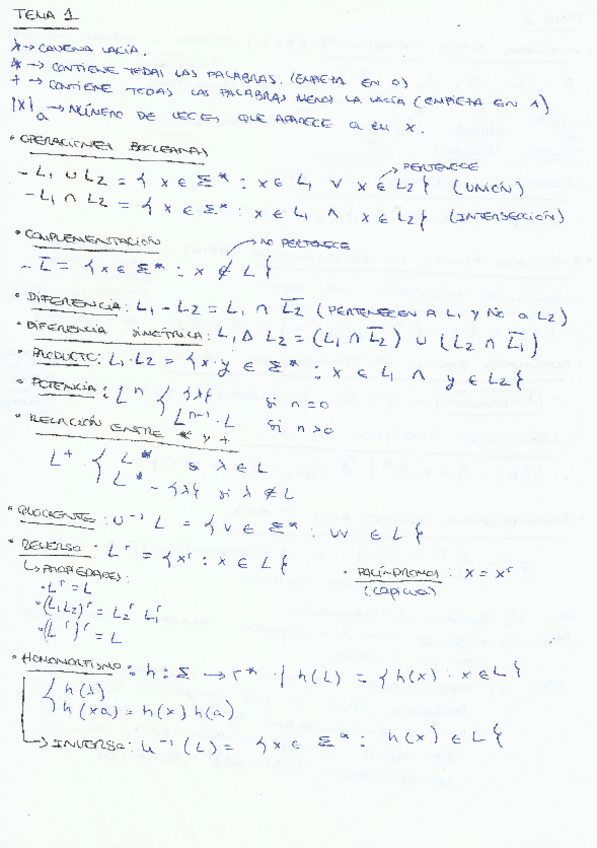 TEMA 1
λ → CADENA VACÍA.
* → CONTIENE TODAS LAS PALABRAS. (EMPIEZA EN 0)
+ → CONTIENE TODAS LAS PALABRAS MENOS LA VACÍA (EMPIEZA EN 1)
|x|a → NÚMERO DE VECES QUE APARECE a EN x.
• OPERACIONES BOOLEANAS
→ PERTENECE
- L₁ ∪ L₂ = { x ∈ Σ* : x ∈ L₁ ∨ x ∈ L₂ } (UNIÓN)
- L₁ ∩ L₂ = { x ∈ Σ* : x ∈ L₁ ∧ x ∈ L₂ } (INTERSECCIÓN)
• COMPLEMENTACIÓN → NO PERTENECE
- L̅ = { x ∈ Σ* : x ∉ L }
• DIFERENCIA: L₁ - L₂ = L₁ ∩ L̅₂ (PERTENECEN A L₁ Y NO A L₂)
• DIFERENCIA SIMÉTRICA: L₁ Δ L₂ = (L₁ ∩ L̅₂) ∪ (L₂ ∩ L̅₁)
• PRODUCTO: L₁·L₂ = { x·y ∈ Σ* : x ∈ L₁ ∧ y ∈ L₂ }
• POTENCIA: Lⁿ { {λ} si n=0
Lⁿ⁻¹·L si n>0
• RELACIÓN ENTRE * y +
L⁺ { L* si λ ∈ L
L* - {λ} si λ ∉ L
• COCIENTE: u⁻¹ L = { v ∈ Σ* : uv ∈ L }
• REVERSO: Lʳ = { xʳ : x ∈ L }
↳ PROPIEDADES:
• PALÍNDROMOS: x = xʳ
(CAPICUA)
• Lʳ = L
• (L₁L₂)ʳ = L₂ʳ L₁ʳ
• (Lʳ)ʳ = L
• HOMOMORFISMO: h: Σ → Γ* / h(L) = { h(x) : x ∈ L }
{ h(λ)
h(xa) = h(x) h(a)
→ INVERSO: h⁻¹(L) = { x ∈ Σ* : h(x) ∈ L }